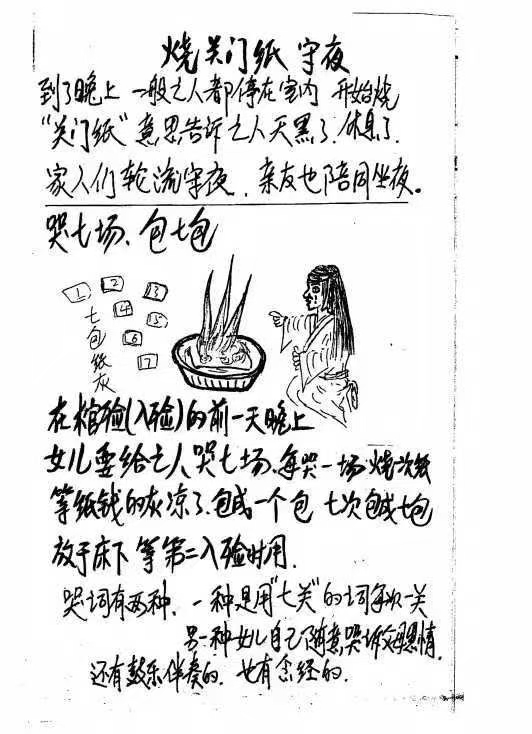 烧关门纸 守夜
到了晚上 一般亡人都停在室内 开始烧
“关门纸”意思告诉亡人天黑了.休息了.
家人们轮流守夜、亲友也陪同坐夜。
哭七场、包七包
1 2 3
4 5
6
7
七包纸灰
在棺殓(入殓)的前一天晚上
女儿要给亡人哭七场、每哭一场烧次纸
等纸钱的灰凉了.包成一个包 七次包成七包
放于床下 等第二入殓时用.
哭词有两种、一种是用“七关”的词每次一关
另一种女儿自己随意哭诉父母恩情.
还有鼓乐伴奏的、也有念经的.